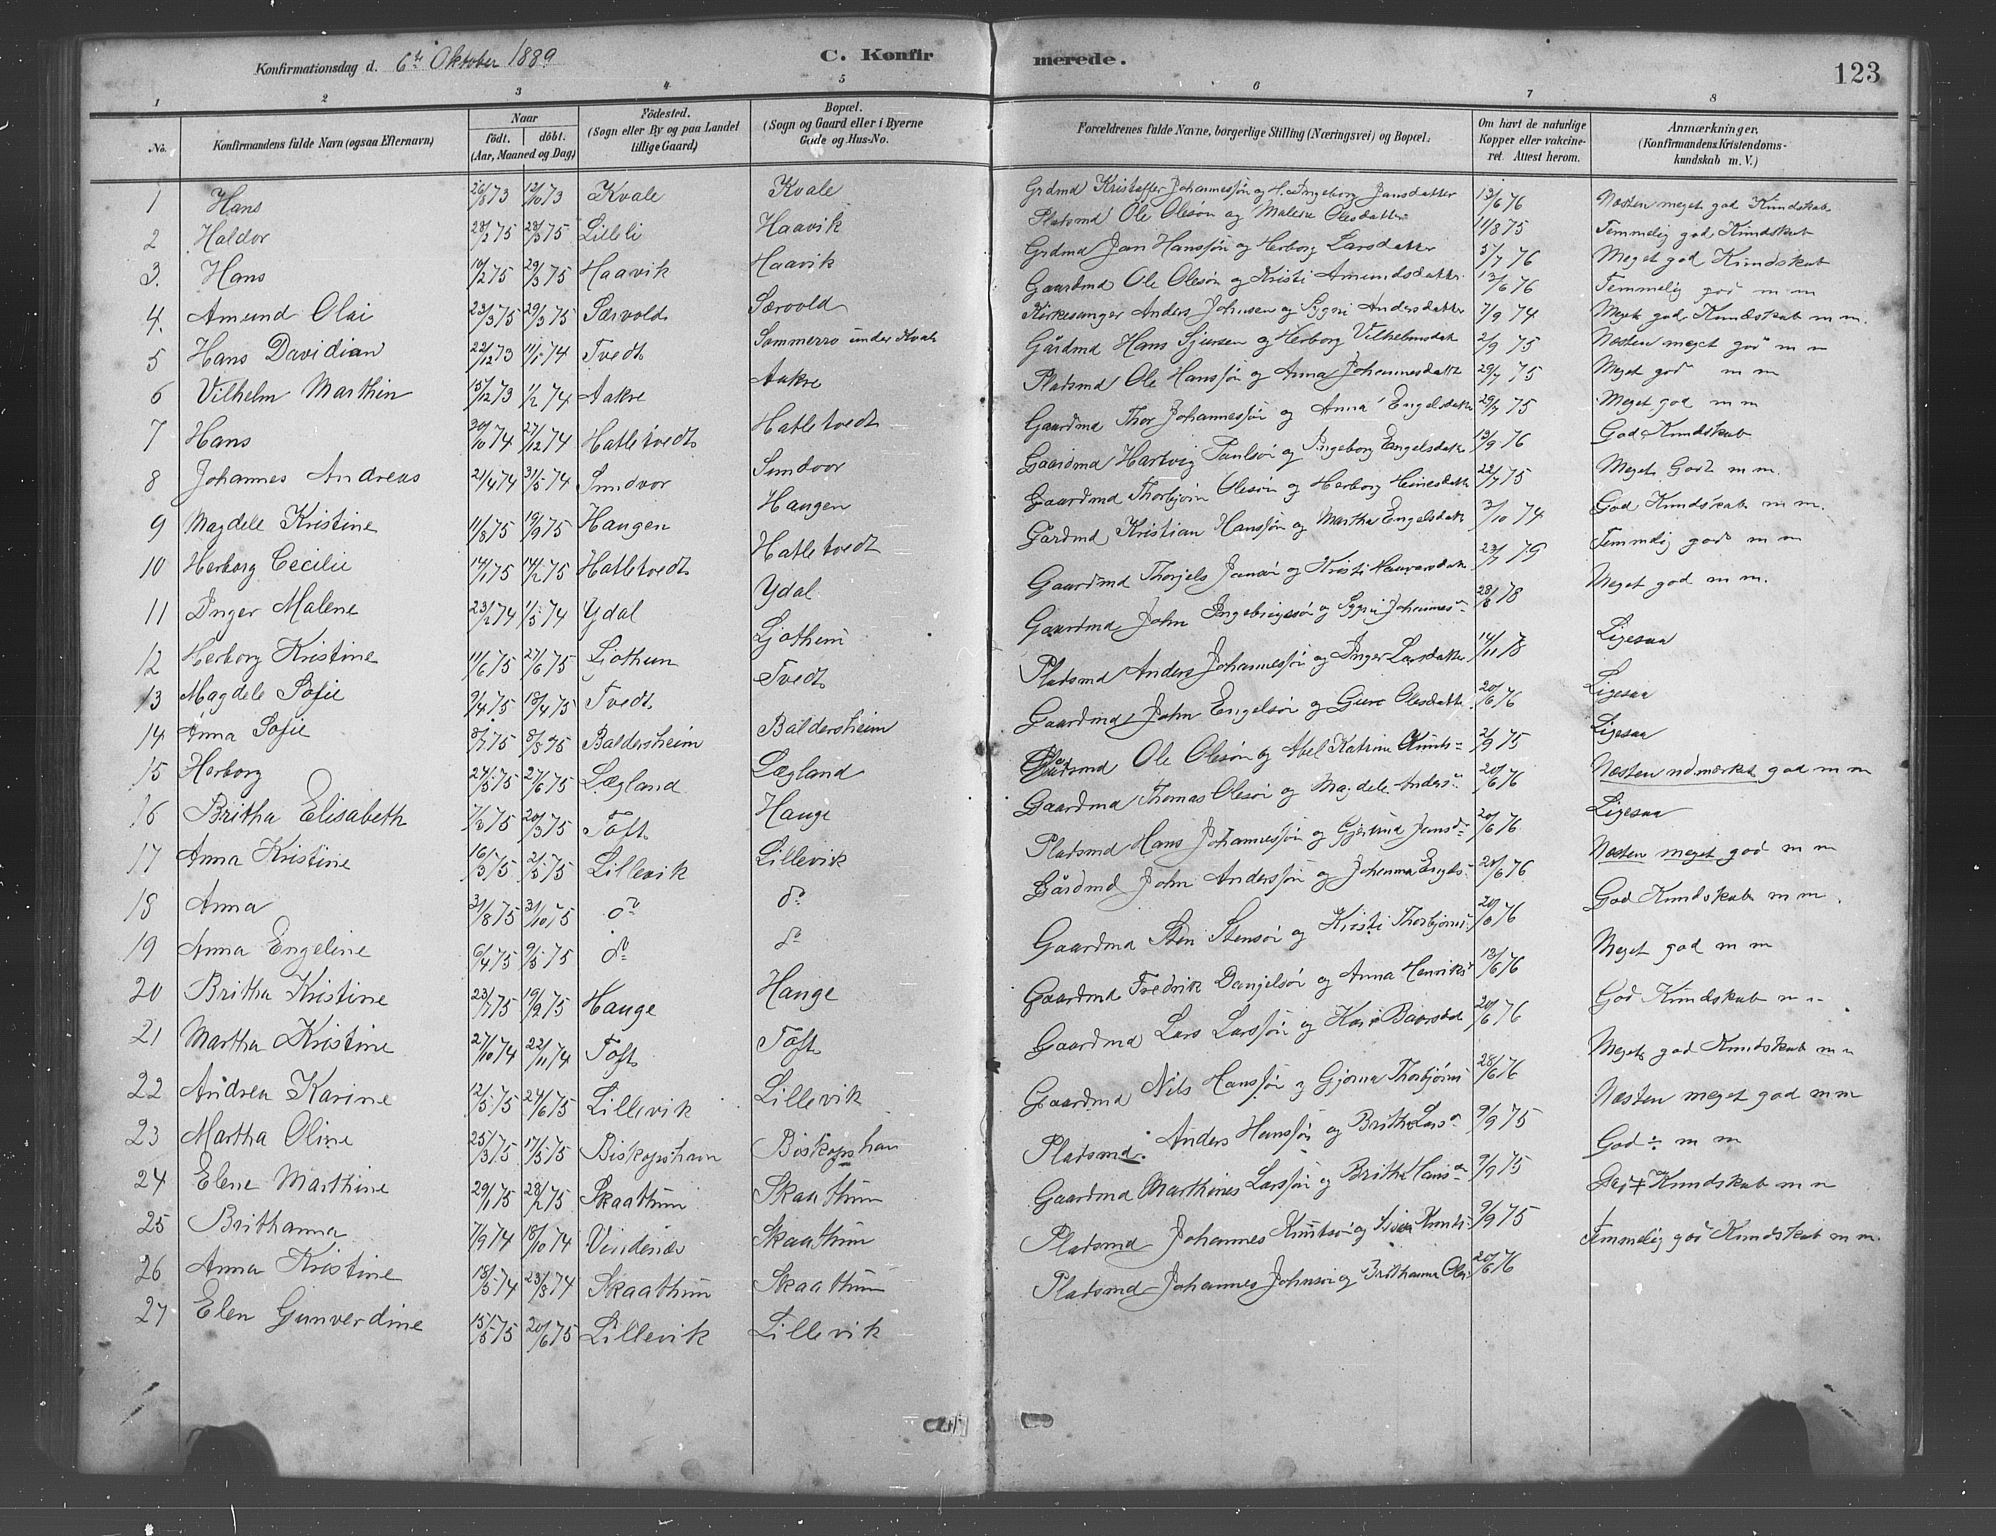 Konfirmationsdag d. 6te Oktober 1889 C. Konfir merede. 123
1 2 3 4 5 6 7 8
No. Konfirmandens fulde Navn (ogsaa Efternavn) Naar födt. döbt. (Aar, Maaned og Dag) Födested. (Sogn eller By og paa Landet tillige Gaard) Bopæl. (Sogn og Gaard eller i Byerne Gade og Hus-No. Forældrenes fulde Navne, borgerlige Stilling (Næringsvei) og Bopæl. Om havt de naturlige Kopper eller vakcineret. Attest herom. Anmærkninger. (Konfirmandens Kristendomskundskab m. V.)
1 Hans 26/8 73 12/10 73 Kvale Kvale Grdmd Kristoffer Johannessön og Ingeborg Jansdatter 13/6 76 Næsten meget god Kundskab
2 Haldor 75 75 Lilleli Haavik Pladsmd Ole Olesön og Malena Olesdatter 11/8 75 Temmelig god Kundskab
3. Hans 75 29/3 75 Haavik Haavik Grdmd Jan Hanssön og Herborg Larsdatter 5/7 76 Meget god Kundskab
4. Amund Olai 23/3 75 29/3 75 Særvold Særvold Gaardmd Ole Olesön og Kristi Amundsdatter 13/6 76 Temmelig god m m
5 Hans Davidian 22/12 73 11/1 74 Tvedt Sommerro under Kvale Kirkesanger Anders Johnsen og Sygni Andersdatter 7/9 74 Meget god Kundskab m m.
6 Vilhelm Marthin 15/12 73 1/2 74 Aakre Aakre Gårdmd Hans Sjursen og Herborg Vilhelmsdatt 2/9 75 Næsten meget god m m
7 Hans 74 27/12 74 Hatletvedt Hatletvedt Pladsmd Ole Hanssön og Anna Johannesdatt 29/7 75 Meget god m m
8 Johannes Andreas 21/4 74 31/5 74 Sundvor Sundvor Gaardmd Thor Johannessön og Anna Engelsdatter 29/7 75 Meget god m m
9 Magdele Kristine 11/8 75 19/9 75 Haugen Haugen Gaardmd Hartvig Paulsön og Ingeborg Engelsdatt 13/9 76 God Kundskab
10 Herborg Cecilie 14/1 75 14/2 75 Hatletvedt Hatletvedt Gaardmd Thorbjörn Olesön og Herborg Heinesdatt 22/7 75 Meget Godt m m.
11 Inger Malene 23/2 74 74 Ydal Ydal Gårdmd Kristian Hanssön og Martha Engelsdatt 2/10 74 God Kundskab m m.
12 Herborg Kristine 11/6 75 27/6 75 Ljothun Ljothun Gaardmd Jansön og Kristi 23/7 79 Temmelig god m m
13 Magdele Sofie 9/4 75 18/4 75 Tvedt Tvedt Gaardmd John og Sygni Johannes 28/8 78 Meget god m m.
14 Anna Sofie 75 75 Baldersheim Baldersheim Pladsmd Anders Johannessön og Inger Larsdatter 14/11 78 Ligesaa
15 Herborg 24/5 75 27/6 75 Lægland Lægland Gaardmd John Engelsön og Guro Olesdatt 20/6 76 Ligesaa
16 Britha Elisabeth 75 20/3 75 Toft Hauge Pladsmd Ole Olesön og Abel Katrina Knuts 2/9 75 Ligesaa
17 Anna Kristine 16/3 75 2/5 75 Lillevik Lillevik Gaardmd Thomas Olesön og Magdele Anders 20/6 76 Næsten udmærket god m m
18 Anna 21/8 75 31/10 75 do do Pladsmd Hans Johannessön og Gjertina Jansd 20/6 76 Ligesaa
19 Anna Engeline 6/4 75 9/5 75 do do Gårdmd John Anderssön og Johanna Engels 20/6 76 Næsten meget god m m
20 Britha Kristine 23/7 75 19/9 75 Hauge Hauge Gaardmd Sten Stensön og Kristi Thorbjörns 76 God Kundskab m m.
21 Martha Kristine 27/10 74 22/11 74 Toft Toft Gaardmd Fredrik Danjelsön og Anna Henriks 13/6 76 Meget god m m
22 Andrea Karine 12/5 75 24/6 75 Lillevik Lillevik Gaardmd Lars Larssön og Kari Baarsd 20/6 76 God Kundskab m m
23 Martha Oline 25/3 75 17/5 75 Biskopshavn Biskopshavn Gaardmd Nils Hanssön og Gjörna Thorbjörns 28/6 76 Meget god Kundskab m m
24 Elene Marthine 29/1 75 28/2 75 Skaathun Skaathun Pladsmd. Anders Hanssön og Britha Lars 9/9 75 Næsten meget god m m
25 Brithanna 7/9 74 18/10 74 Vindenæs Skaathun Gaardmd Marthines Larssön og Britha Hans 9/9 75 God m m
26 Anna Kristine 18/5 74 74 Skaathun Skaathun Pladsmd Johannes Knutsön og Knuts 9/9 75 God Kundskab m m
27 Elen Gunverdine 15/5 75 20/6 75 Lillevik Lillevik Pladsmd Johannes Johnsön og Brithanna Oles 20/6 76 Temmelig god Kundskab m m.